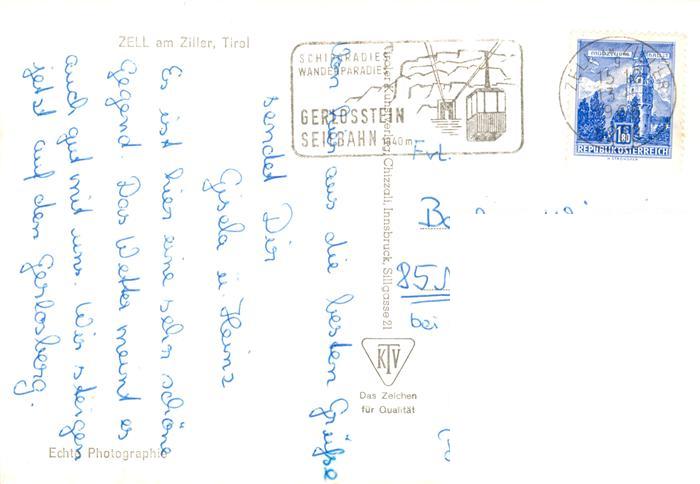 ZELL am Ziller, Tirol
Es ist hier eine sehr schöne
Gegend. Das Wetter meint es
auch gut mit uns. Wir steigen
jetzt auf den Gerlosberg.
aus die besten Grüße
sendet Dir
Gisela u. Heinz
Echte Photographie
SCHIPARADIES
WANDERPARADIES
GERLOSSTEIN
SEILBAHN 1640m
Tiroler Kunstverlag Chizzali, Innsbruck, Sillgasse 21
KTV
Das Zeichen
für Qualität
ZELL
15
MÜNZTURM
1.80
REPUBLIK ÖSTERREICH
Frl.
855
bei